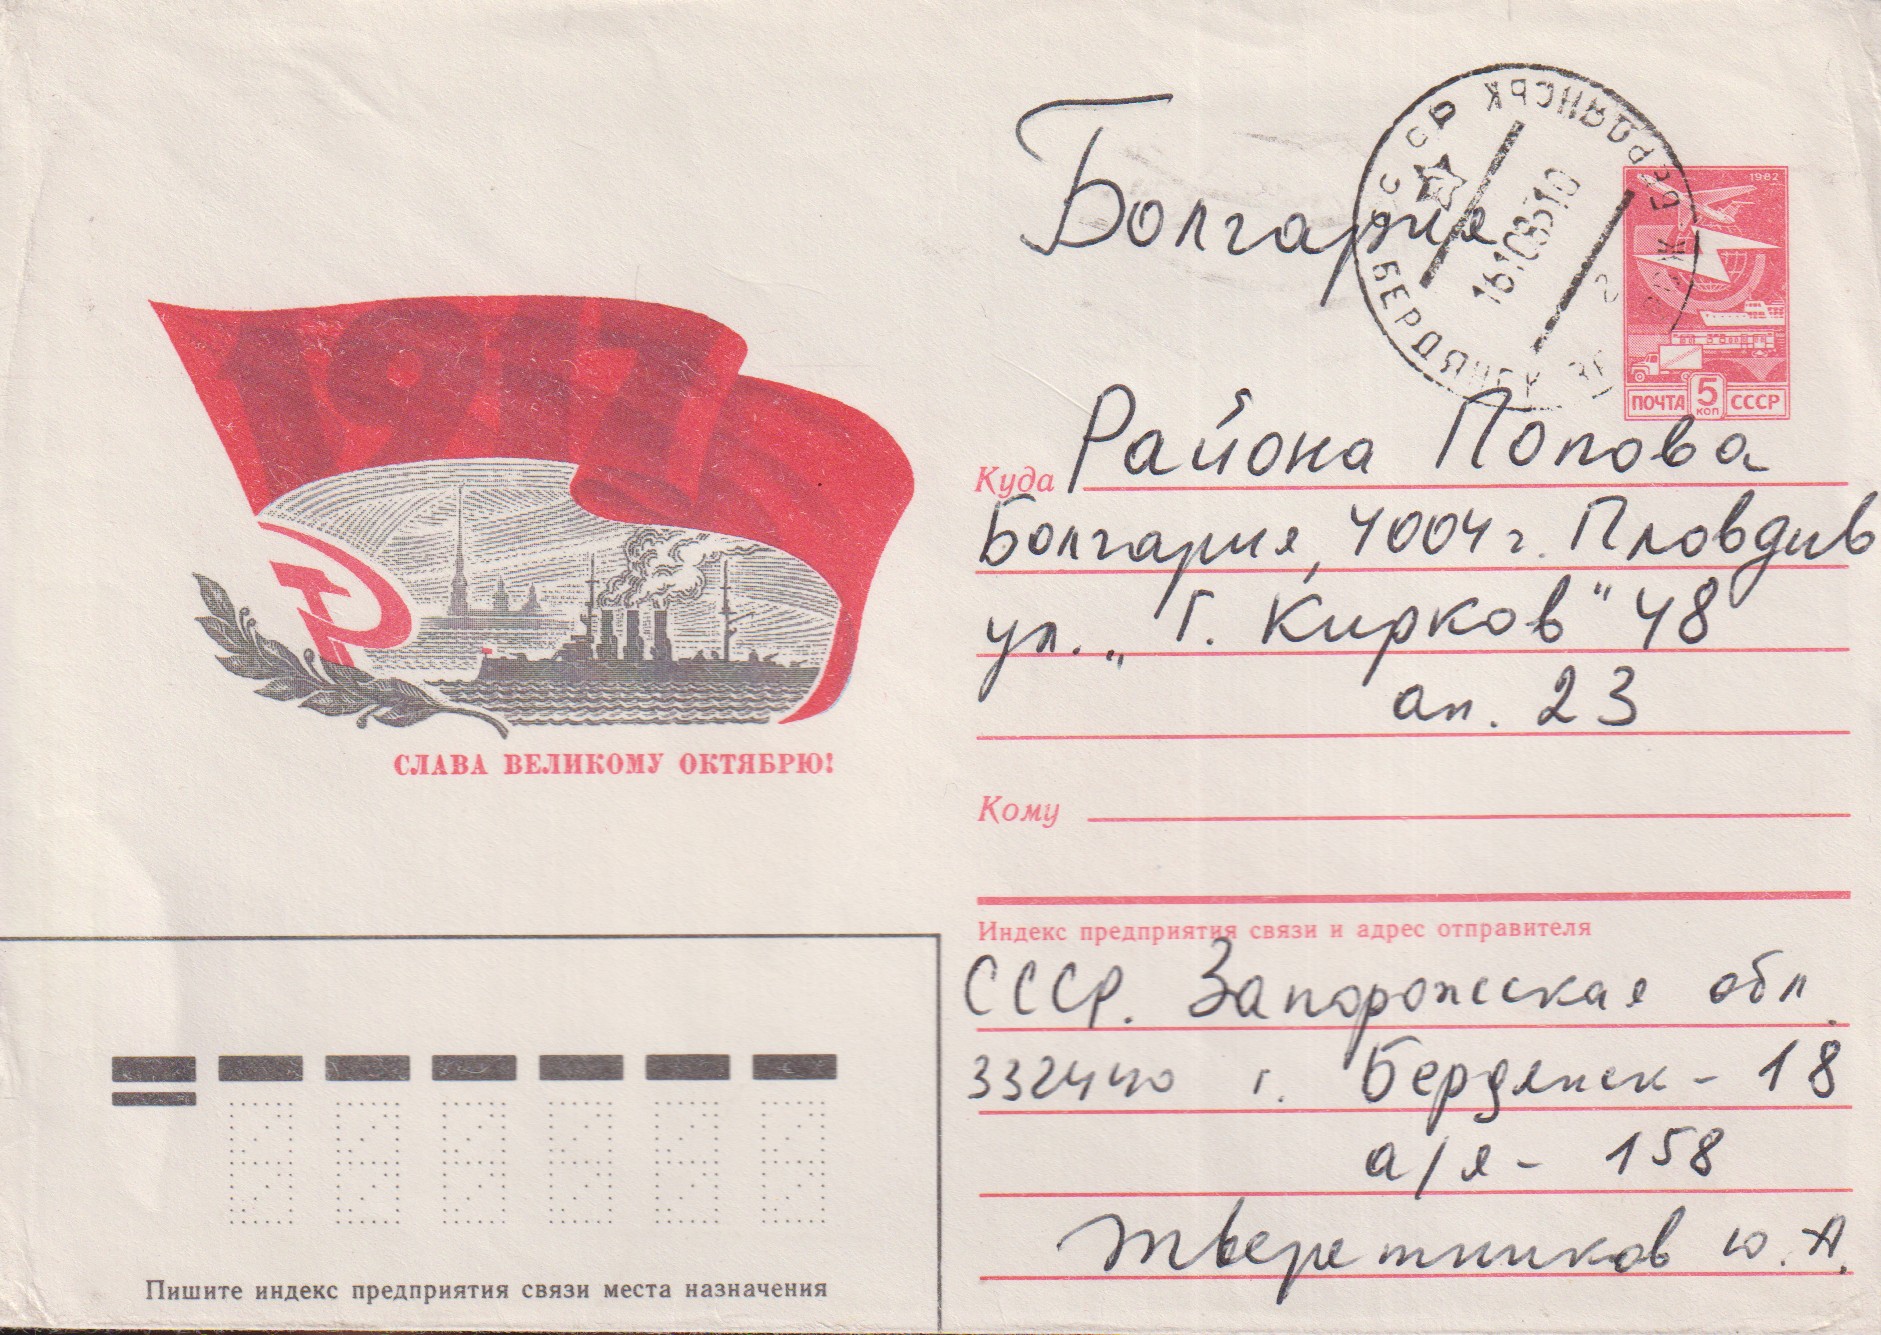 Болгария
СССР
БЕРДЯНСЬК
БЕРДЯНСК
161085 10
1982
ПОЧТА 5 КОП СССР
1917
СЛАВА ВЕЛИКОМУ ОКТЯБРЮ!
Куда Района Попова
Болгария, 4004 г. Пловдив
ул. „Г. Кирков" 48
ап. 23
Кому
Индекс предприятия связи и адрес отправителя
СССР. Запорожская обл.
332440 г. Бердянск - 18
а/я - 158
Тверетников Ю. А.
Пишите индекс предприятия связи места назначения